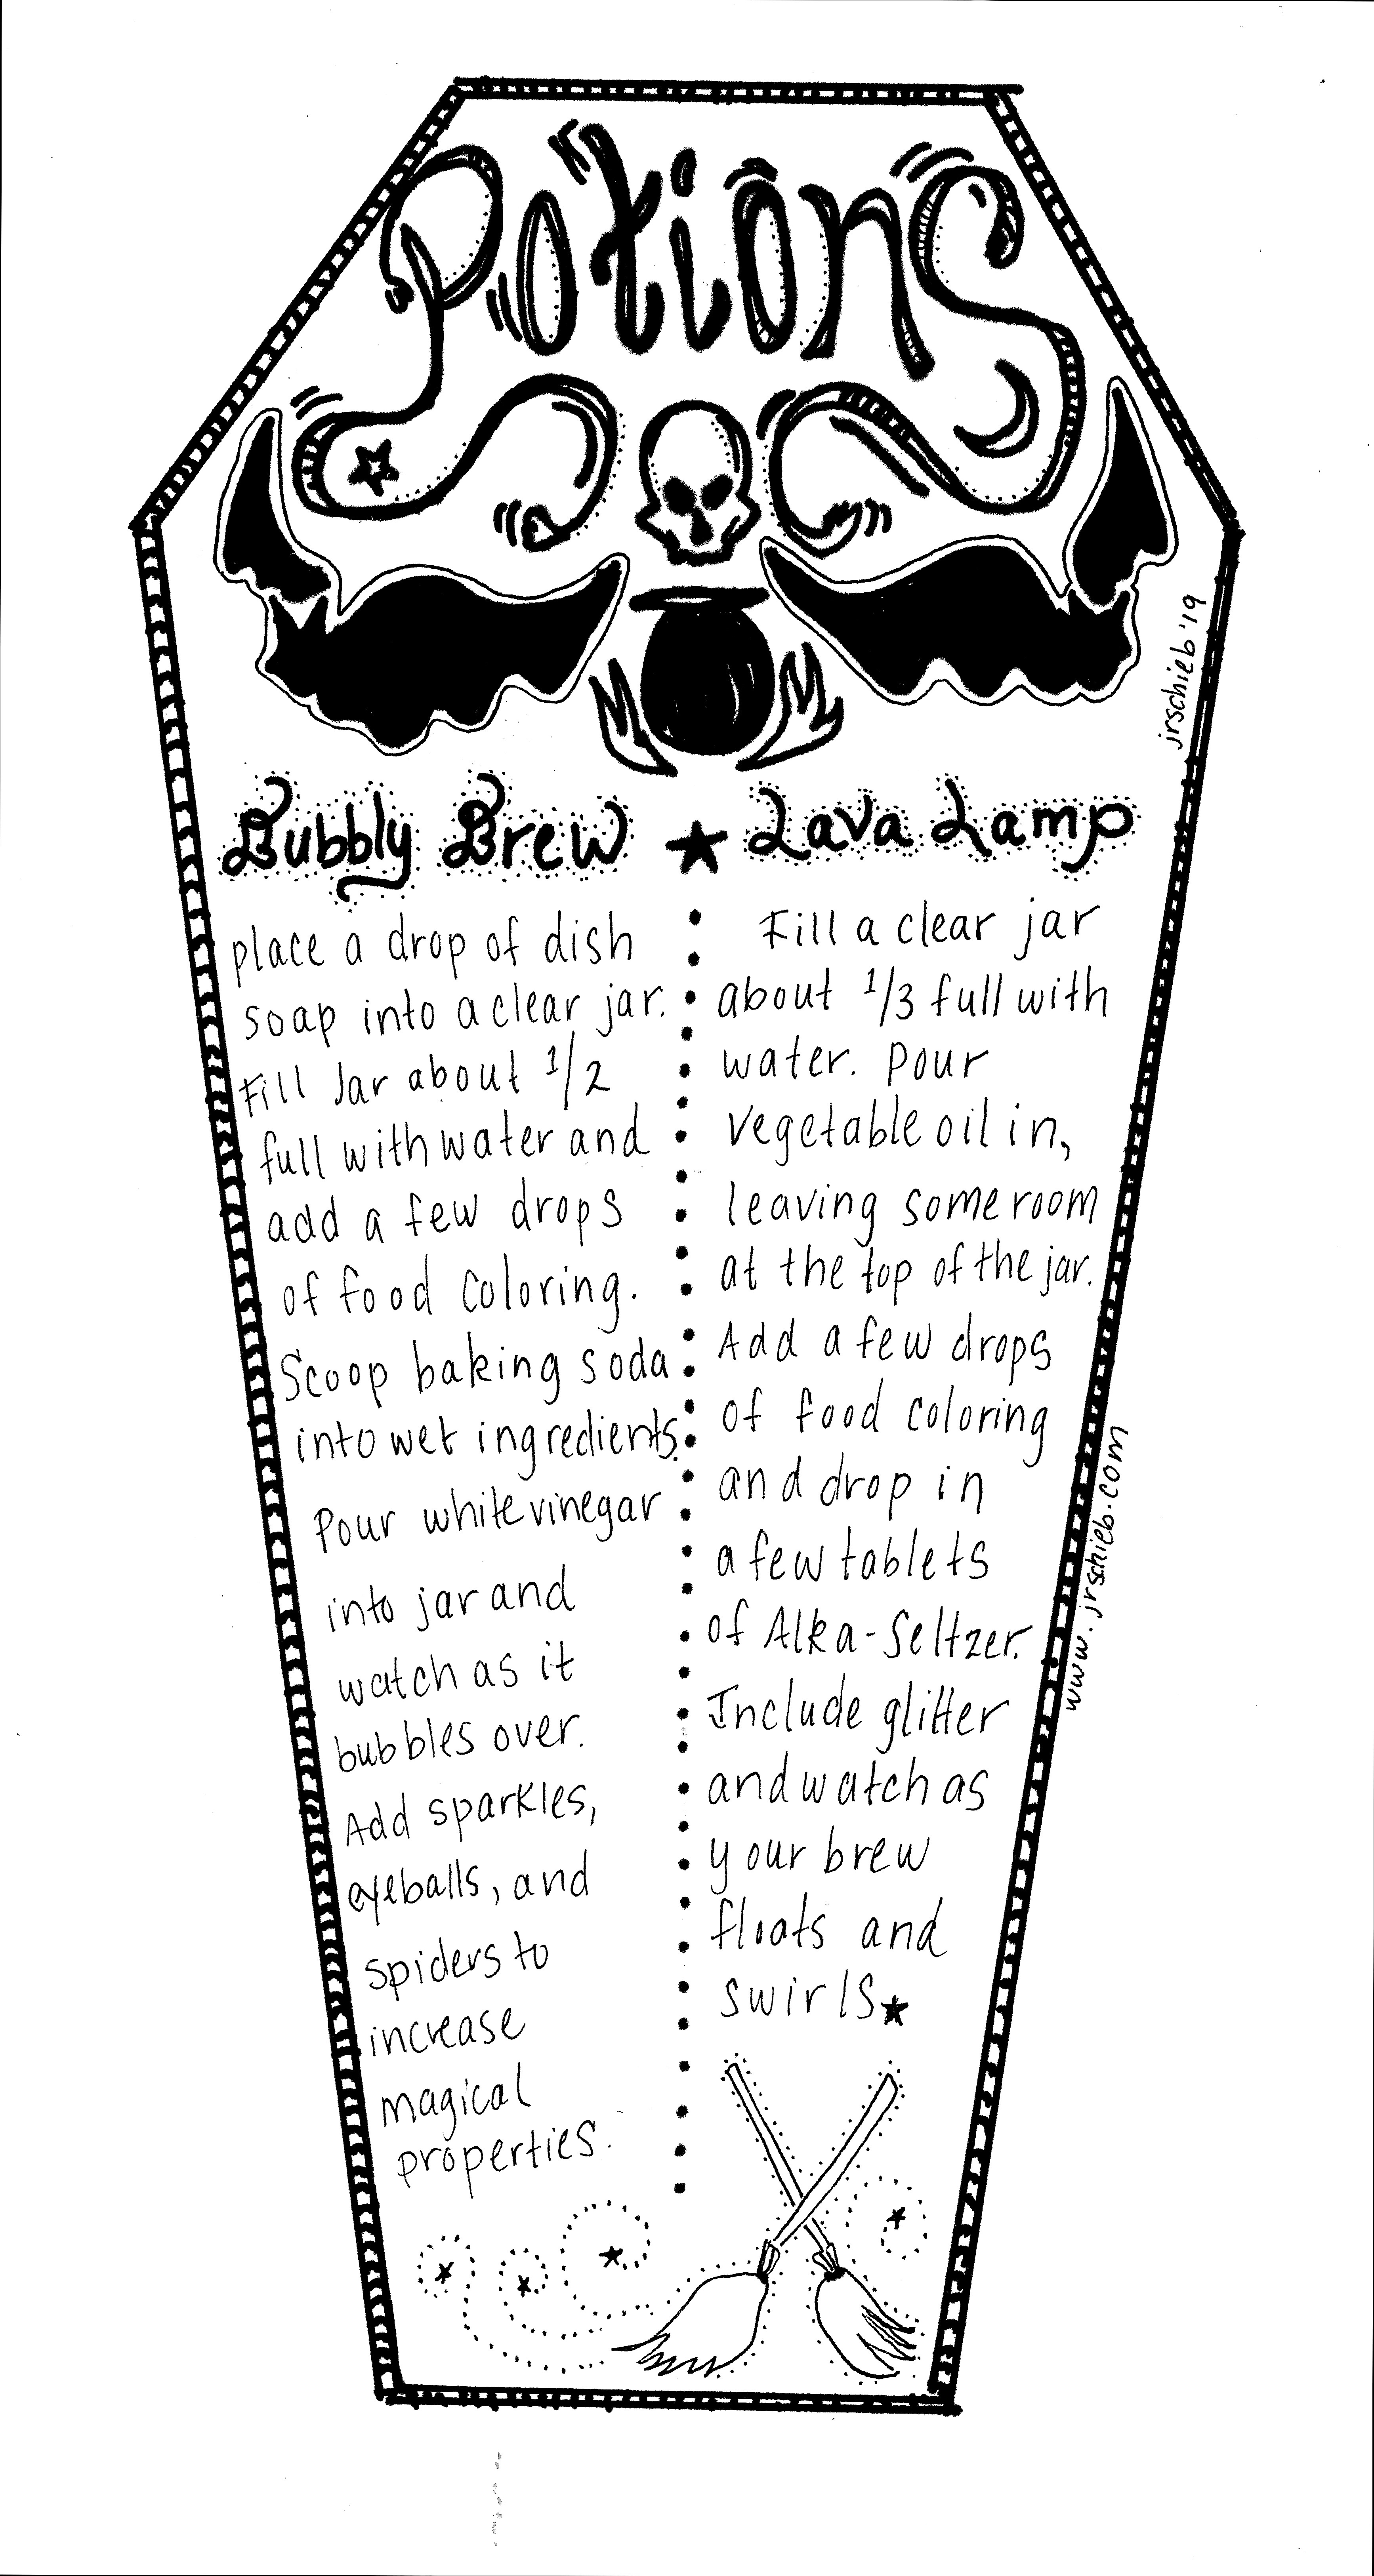 Potions
jrschieb '19
Bubbly Brew ★ Lava Lamp
place a drop of dish
soap into a clear jar.
Fill Jar about 1/2
full with water and
add a few drops
of food coloring.
Scoop baking soda
into wet ingredients.
Pour white vinegar
into jar and
watch as it
bubbles over.
Add sparkles,
eyeballs, and
spiders to
increase
magical
properties.
Fill a clear jar
about 1/3 full with
water. Pour
vegetable oil in,
leaving some room
at the top of the jar.
Add a few drops
of food coloring
and drop in
a few tablets
of Alka-Seltzer.
Include glitter
and watch as
your brew
floats and
swirls★
www.jrschieb.com